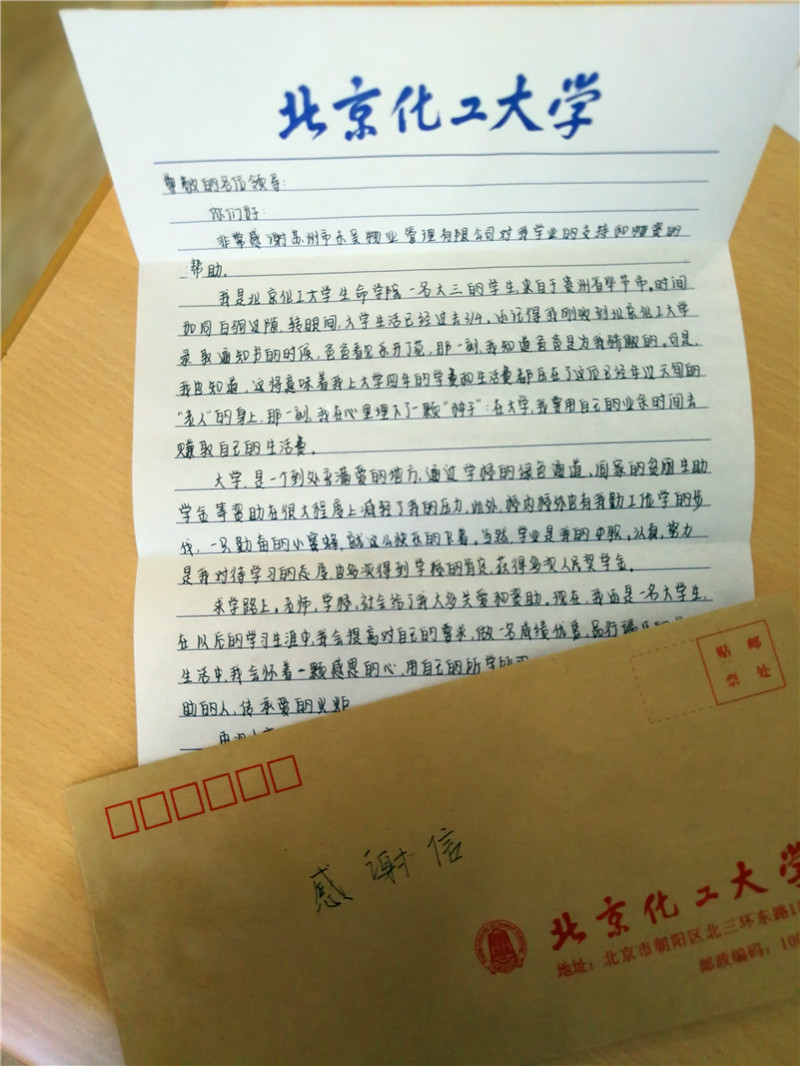 北京化工大学
尊敬的各位领导:
你们好:
非常感谢苏州市东吴物业管理有限公司对我学业的支持和物资的
帮助。
我是北京化工大学生命学院一名大三的学生,来自于贵州省毕节市。时间
如同白驹过隙,转眼间,大学生活已经过去3/4,还记得我刚收到北京化工大学
录取通知书的时候,爸爸看见乐开了花,那一刻,我知道爸爸是为我骄傲的,可是,
我也知道,这将意味着我上大学四年的学费和生活费都压在了这位已经年过天旬的
“老人”的身上,那一刻,我在心里埋下了一颗“种子”:在大学,我要用自己的业余时间去
赚取自己的生活费。
大学,是一个到处充满爱的地方,通过学校的绿色通道,国家的贫困生助
学金等资助在很大程度上减轻了我的压力,此外,校内校外也有我勤工俭学的步
伐,一只勤奋的小蜜蜂,就这么快乐的飞着,当然,学业是我的中心,认真,努力
是我对待学习的态度,也多次得到学校的肯定,获得多次人民奖学金。
求学路上,老师,学校,社会给了我太多关爱和资助。现在,我还是一名大学生,
在以后的学习生涯中,我会提高对自己的要求,做一名成绩优良,品行
生活中,我会怀着一颗感恩的心,用自己的所学所
助的人,传承爱的火炬
贴 邮
票 处
感谢信
北京化工大学
地址:北京市朝阳区北三环东路1
邮政编码:100